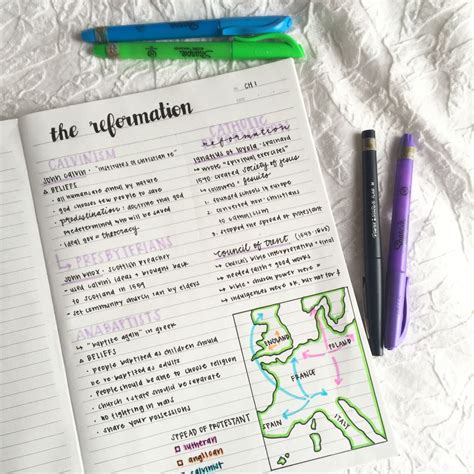 Sharpie
CH 1
the reformation
CALVINISM
John Calvin - "Institutes of Christian re"
BELIEFS
all humans are sinful by nature
god chooses few people to save
predestination: doctrine that god
predetermined who will be saved
ideal gov = theocracy
PRESBYTERIANS
John Knox - Scottish Preacher
used calvin's ideas + brought back
to scotland in 1559
set community church run by elders
ANABAPTISTS
"baptize again" in greek
BELIEFS
people baptized as children should
be re-baptized as adults
people should be able to choose religion
church + state should be separate
no fighting in wars
share your possessions
CATHOLIC
reformation
Ignatius of Loyola - spaniard
wrote "spiritual exercises"
1540 created society of jesus
Jesuits
1. founded schools in europe
2. converted non-christians
to catholicism
3. stopped the spread of protestant
council of trent (1545-1563)
church's bible interpretation = final
needed faith + good works
bible + church power
indulgences were ok, but not for $
SPREAD OF PROTESTANT
lutheran
anglican
calvinist
ENGLAND
POLAND
FRANCE
SPAIN
ITALY